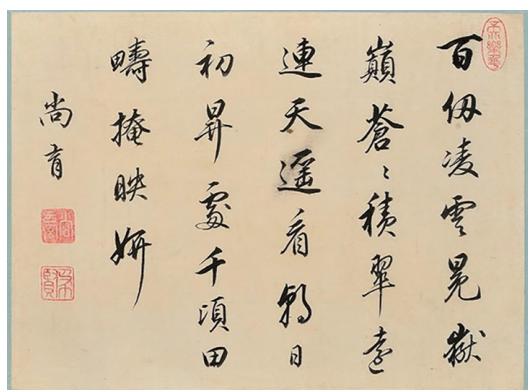 百仭凌雲晃嶽
巔蒼〻積翠遠
連天遥看朝日
初昇處千頃田
疇掩映妍
尚育